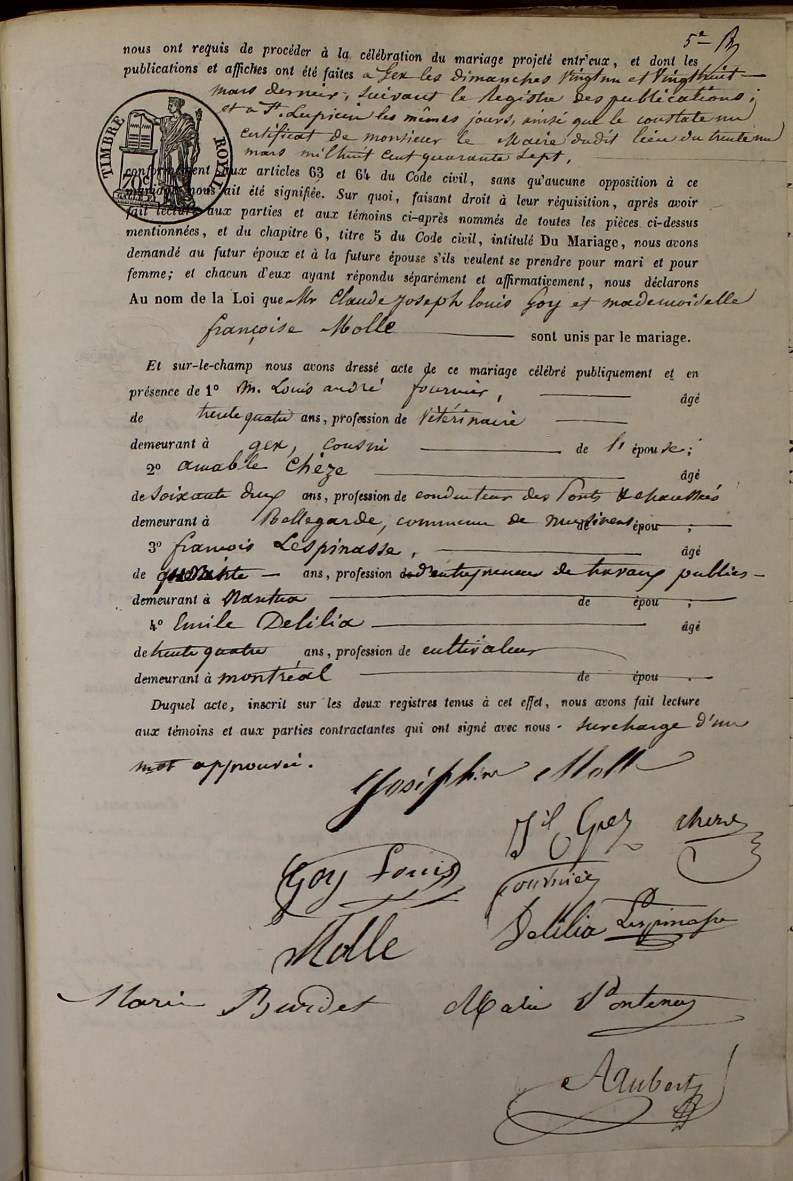 5e
nous ont requis de procéder à la célébration du mariage projeté entr'eux, et dont les
publications et affiches ont été faites à Gex les dimanches vingt un et vingt huit
mars dernier, suivant le registre des publications;
et à St. Lupicin les mêmes jours, ainsi que le constate un
certificat de monsieur le Maire dudit lieu du trente un
mars mil huit cent quarante sept,
TIMBRE ROYAL
conformément aux articles 63 et 64 du Code civil, sans qu'aucune opposition à ce
mariage nous ait été signifiée. Sur quoi, faisant droit à leur réquisition, après avoir
fait lecture aux parties et aux témoins ci-après nommés de toutes les pièces ci-dessus
mentionnées, et du chapitre 6, titre 5 du Code civil, intitulé Du Mariage, nous avons
demandé au futur époux et à la future épouse s'ils veulent se prendre pour mari et pour
femme; et chacun d'eux ayant répondu séparément et affirmativement, nous déclarons
Au nom de la Loi que Mr Claude Joseph Louis Goy et mademoiselle
françoise Molle sont unis par le mariage.
Et sur-le-champ nous avons dressé acte de ce mariage célébré publiquement et en
présence de 1° M. Louis andré fournier, âgé
de trente quatre ans, profession de vétérinaire
demeurant à gex, cousin de l'épouse;
2° amable Chèze âgé
de soixante deux ans, profession de conducteur des Ponts & chaussées
demeurant à Bellegarde, commune de musinens de épou ;
3° françois Lespinasse, âgé
de quarante ans, profession d'entrepreneur de travaux publics
demeurant à Nantua de épou ;
4° Emile Delilia âgé
de trente quatre ans, profession de cultivateur
demeurant à montréal de épou .
Duquel acte, inscrit sur les deux registres tenus à cet effet, nous avons fait lecture
aux témoins et aux parties contractantes qui ont signé avec nous. surcharge d'un
mot approuvée.
Joséphine Molle
Goy Louis
fournier
Molle
Delilia Lespinasse
Marie Burdet